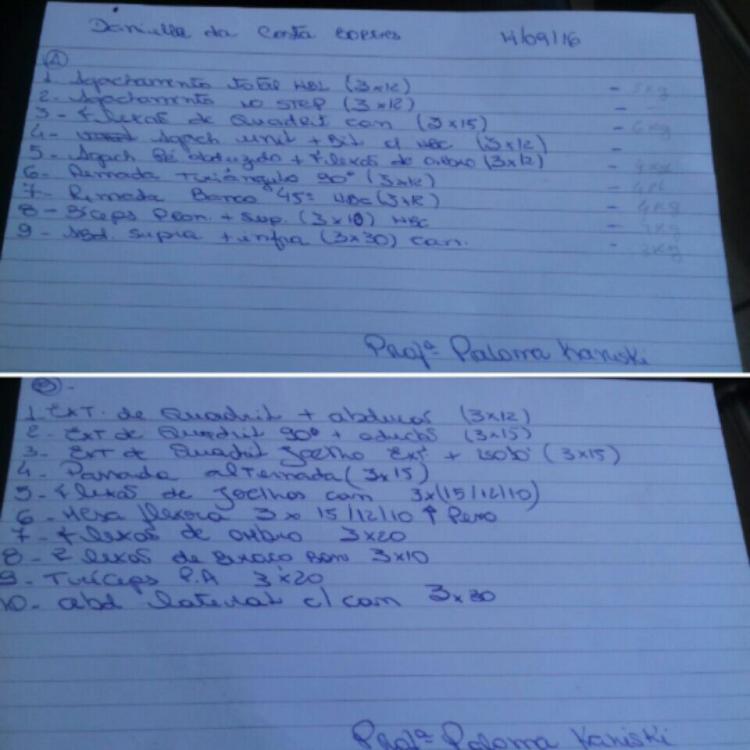 Danielle da Costa 14/09/16
A
1. Agachamento total HBL (3x12) - 5kg
2. Agachamento no STEP (3x12) -
3 - Flexão de Quadril can (3x15) - 6kg
4 - Agach unil + Bil c/ HBC (3x12) -
5. Agach Pé abduzido + Flexão de ombro (3x12)
6. Remada Triângulo 90° (3x12)
7. Remada Banco 45° HBC (3x12) - 4kg
8 - Bíceps Pron. + Sup. (3x10) HBC
9 - Abd. Supra + infra (3x30) can. - 3kg
Profª Paloma Kaniski
B -
1. Ext. de Quadril + abdução (3x12)
2. Ext de Quadril 90° + adução (3x15)
3. Ext de Quadril Joelho Ext + (3x15)
4. Passada alternada (3x15)
5 - Flexão de Joelhos can 3x(15/12/10)
6 - Mesa flexora 3x 15/12/10 ↑ Peso
7 - Flexão de ombro 3x20
8 - Flexão de Braço 3x10
9 - Tríceps P.A 3x20
10 - abd lateral c/ can 3x30
Profª Paloma Kaniski